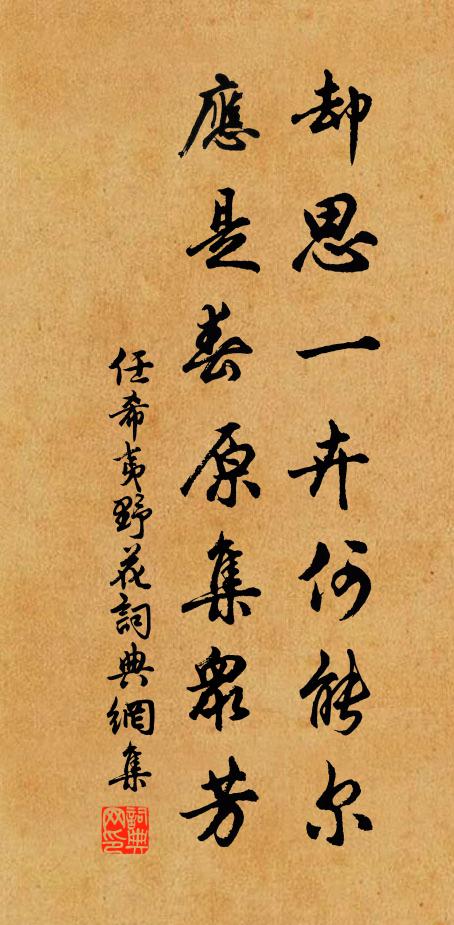 却思一卉何能尔
應是春原集眾芳
任希夷野花詞典網集
詞典网印